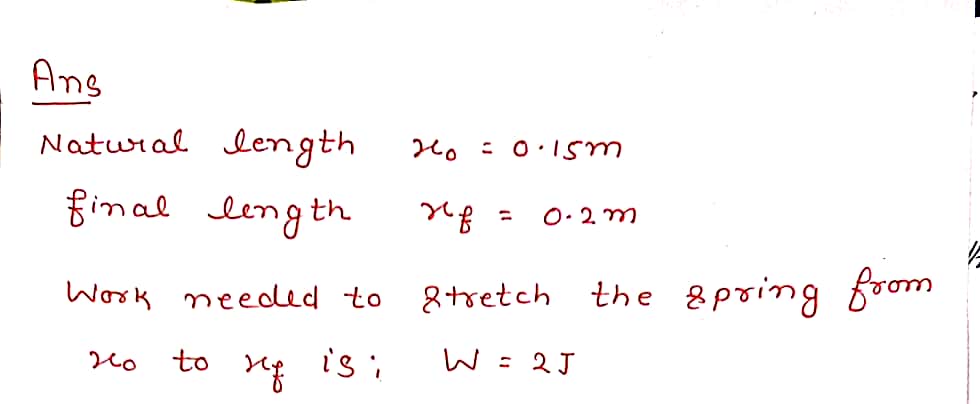 Ans
Natural length x₀ = 0.15m
final length x_f = 0.2m
Work needed to stretch the spring from
x₀ to x_f is; W = 2J